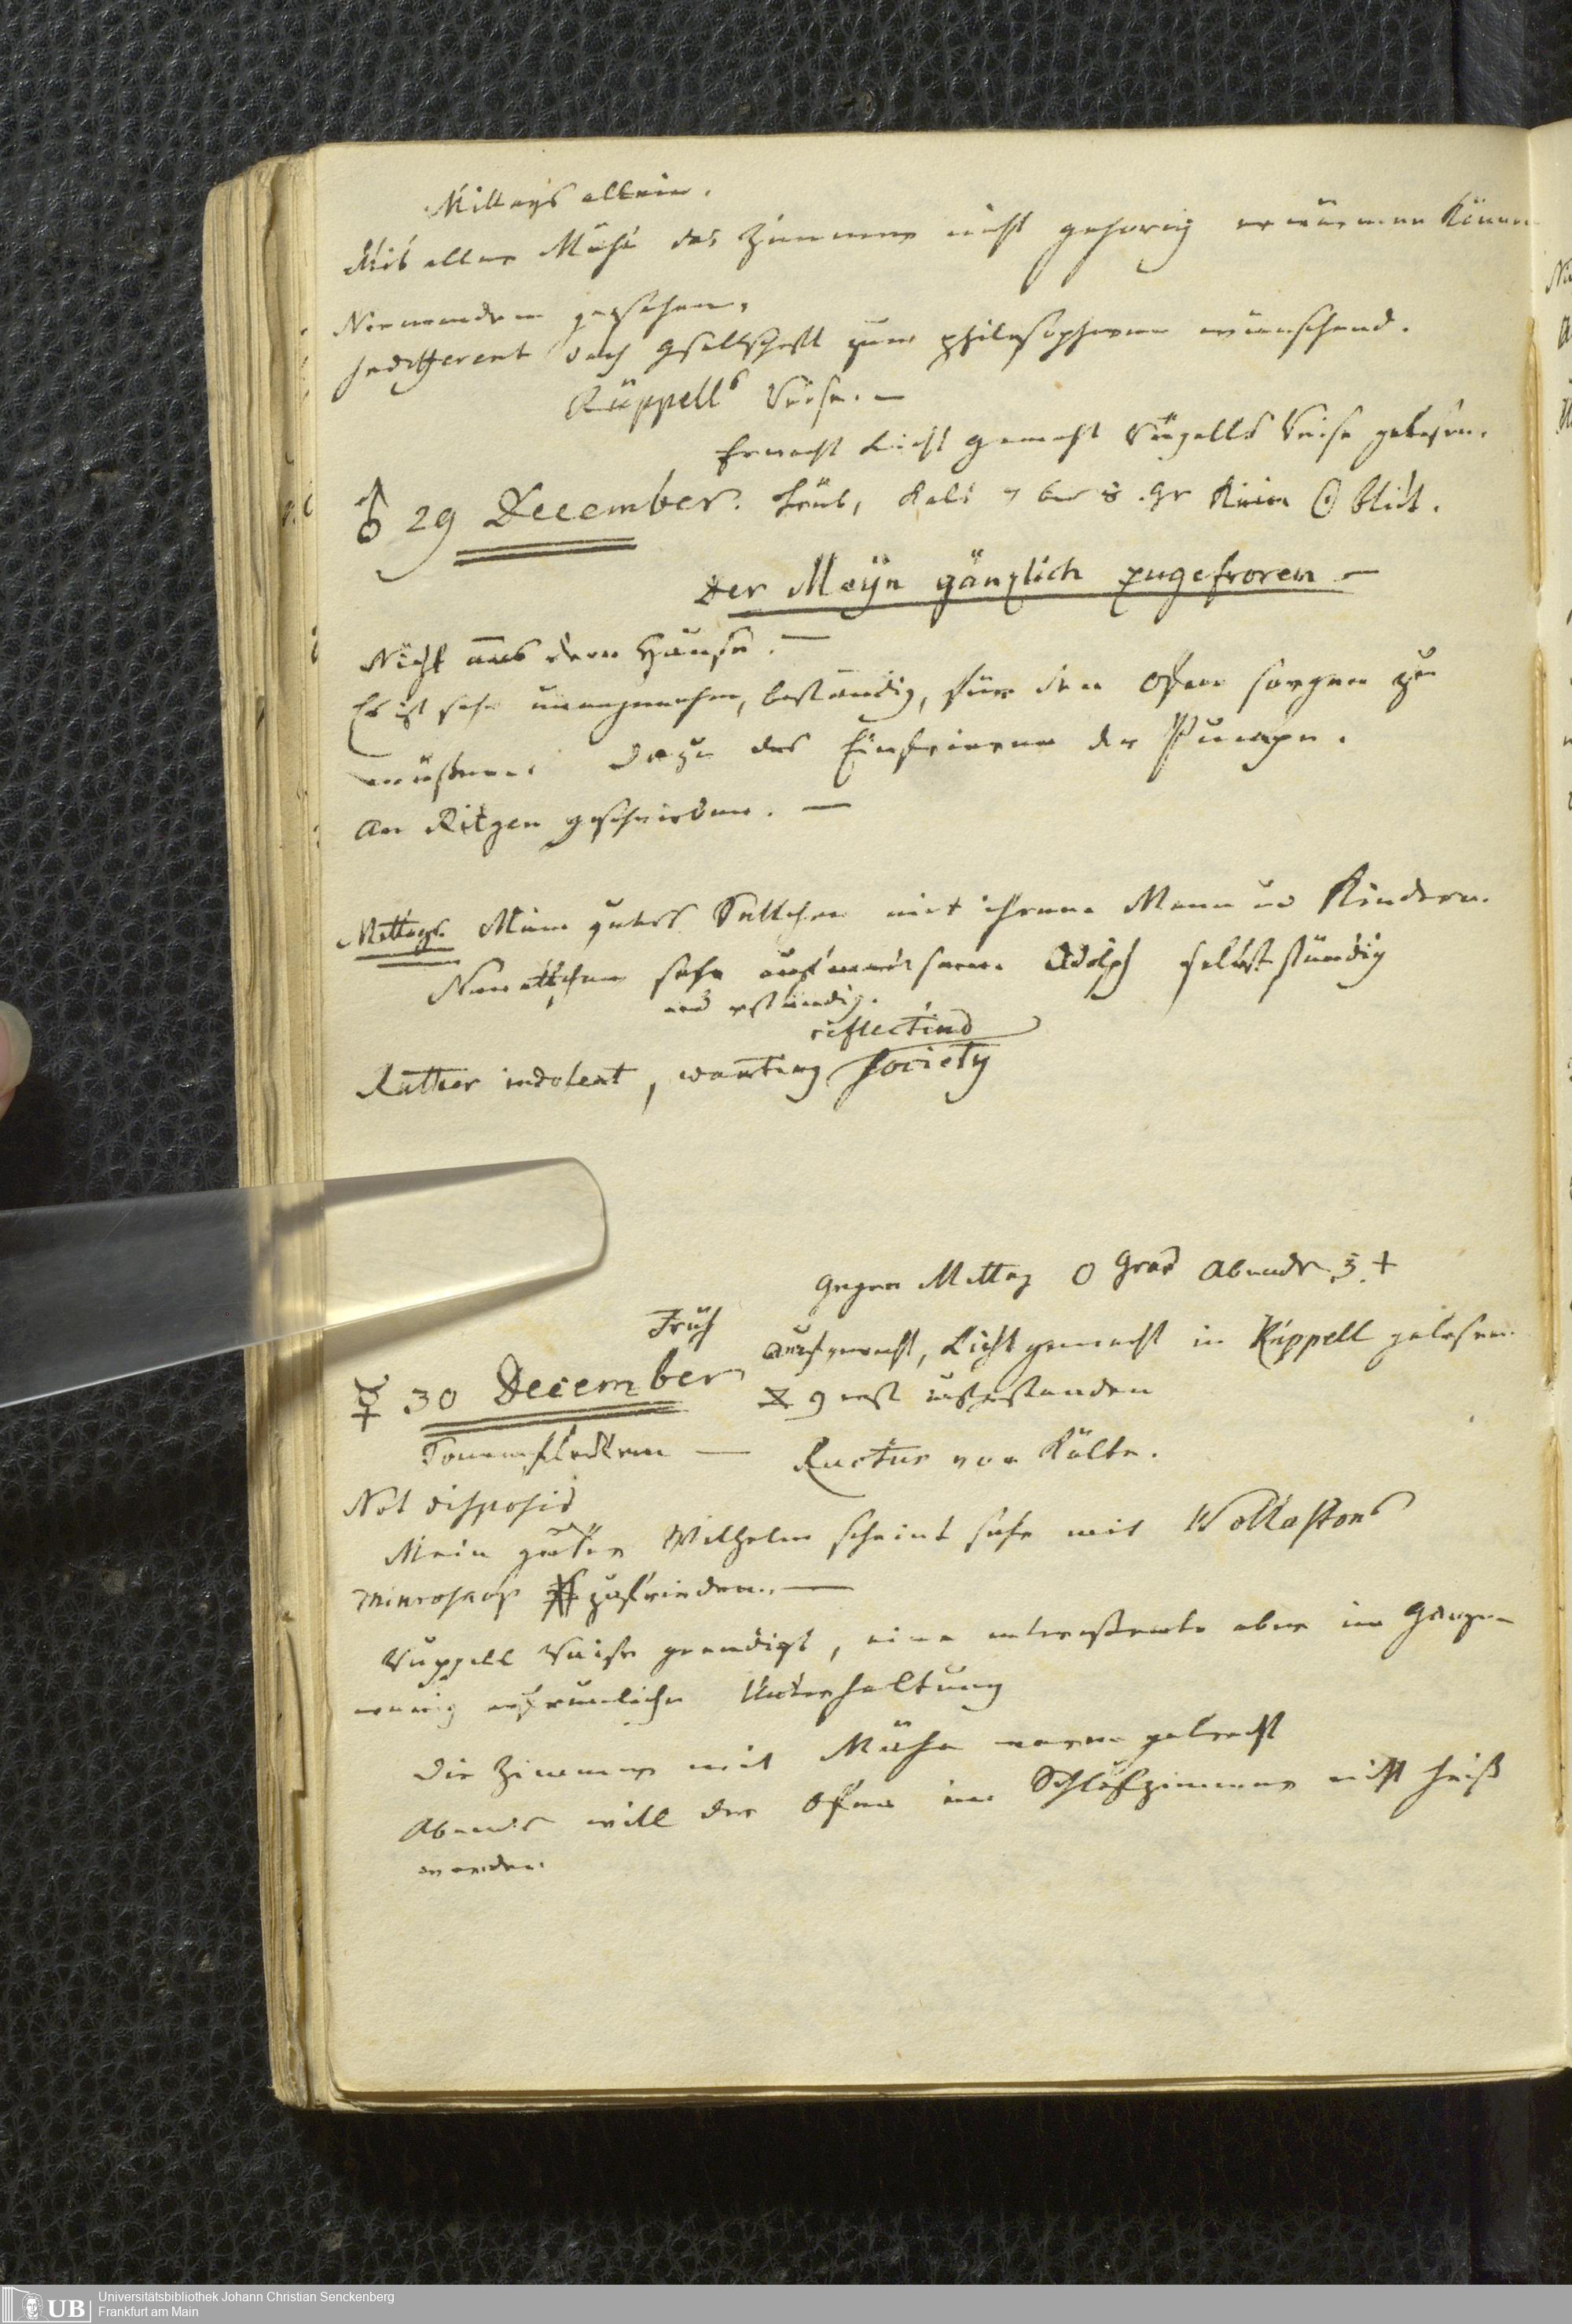 Mittags allein.
Mit aller Mühe das Zimmer nicht gehörig erwärmen können
Niemanden gesehen,
Indifferent doch Gesellschaft zum philosophiren wünschend.
Rüppells Reise. —
Erwacht Licht gemacht Rüppells Reise gelesen.
♂ 29 December. Trüb, kalt 7 bis 8 Gr kein ☉ blick.
Der Mayn gänzlich zugefroren —
Nicht aus dem Hause. —
Es ist sehr unangenehm, beständig, für den Ofen sorgen zu
müssen. Dazu das Einfrieren der Pumpe.
An Ritgen geschrieben. —
Mittags. Mein gutes mit ihrem Mann u Kindern.
sehr aufmerksam. Adolph selbstständig
und verständig.
reflectind
Rather indolent, wanting society
Gegen Mittag 0 Grad Abends 3 +
Früh
aufgewacht, Licht gemacht in Rüppell gelesen.
☿ 30 December
9 erst aufgestanden
Sonnenflecken — Ructus von Kälte.
Not disposid
Mein guter Wilhelm scheint sehr mit Wollastons
Microskop zufrieden. —
Rüppell Reise geendigt, eine interessante aber im Ganzen
wenig erfreuliche Unterhaltung
Die Zimmer mit Mühe warm gebracht
Abends will der Ofen im Schlafzimmer nicht heiß
werden.